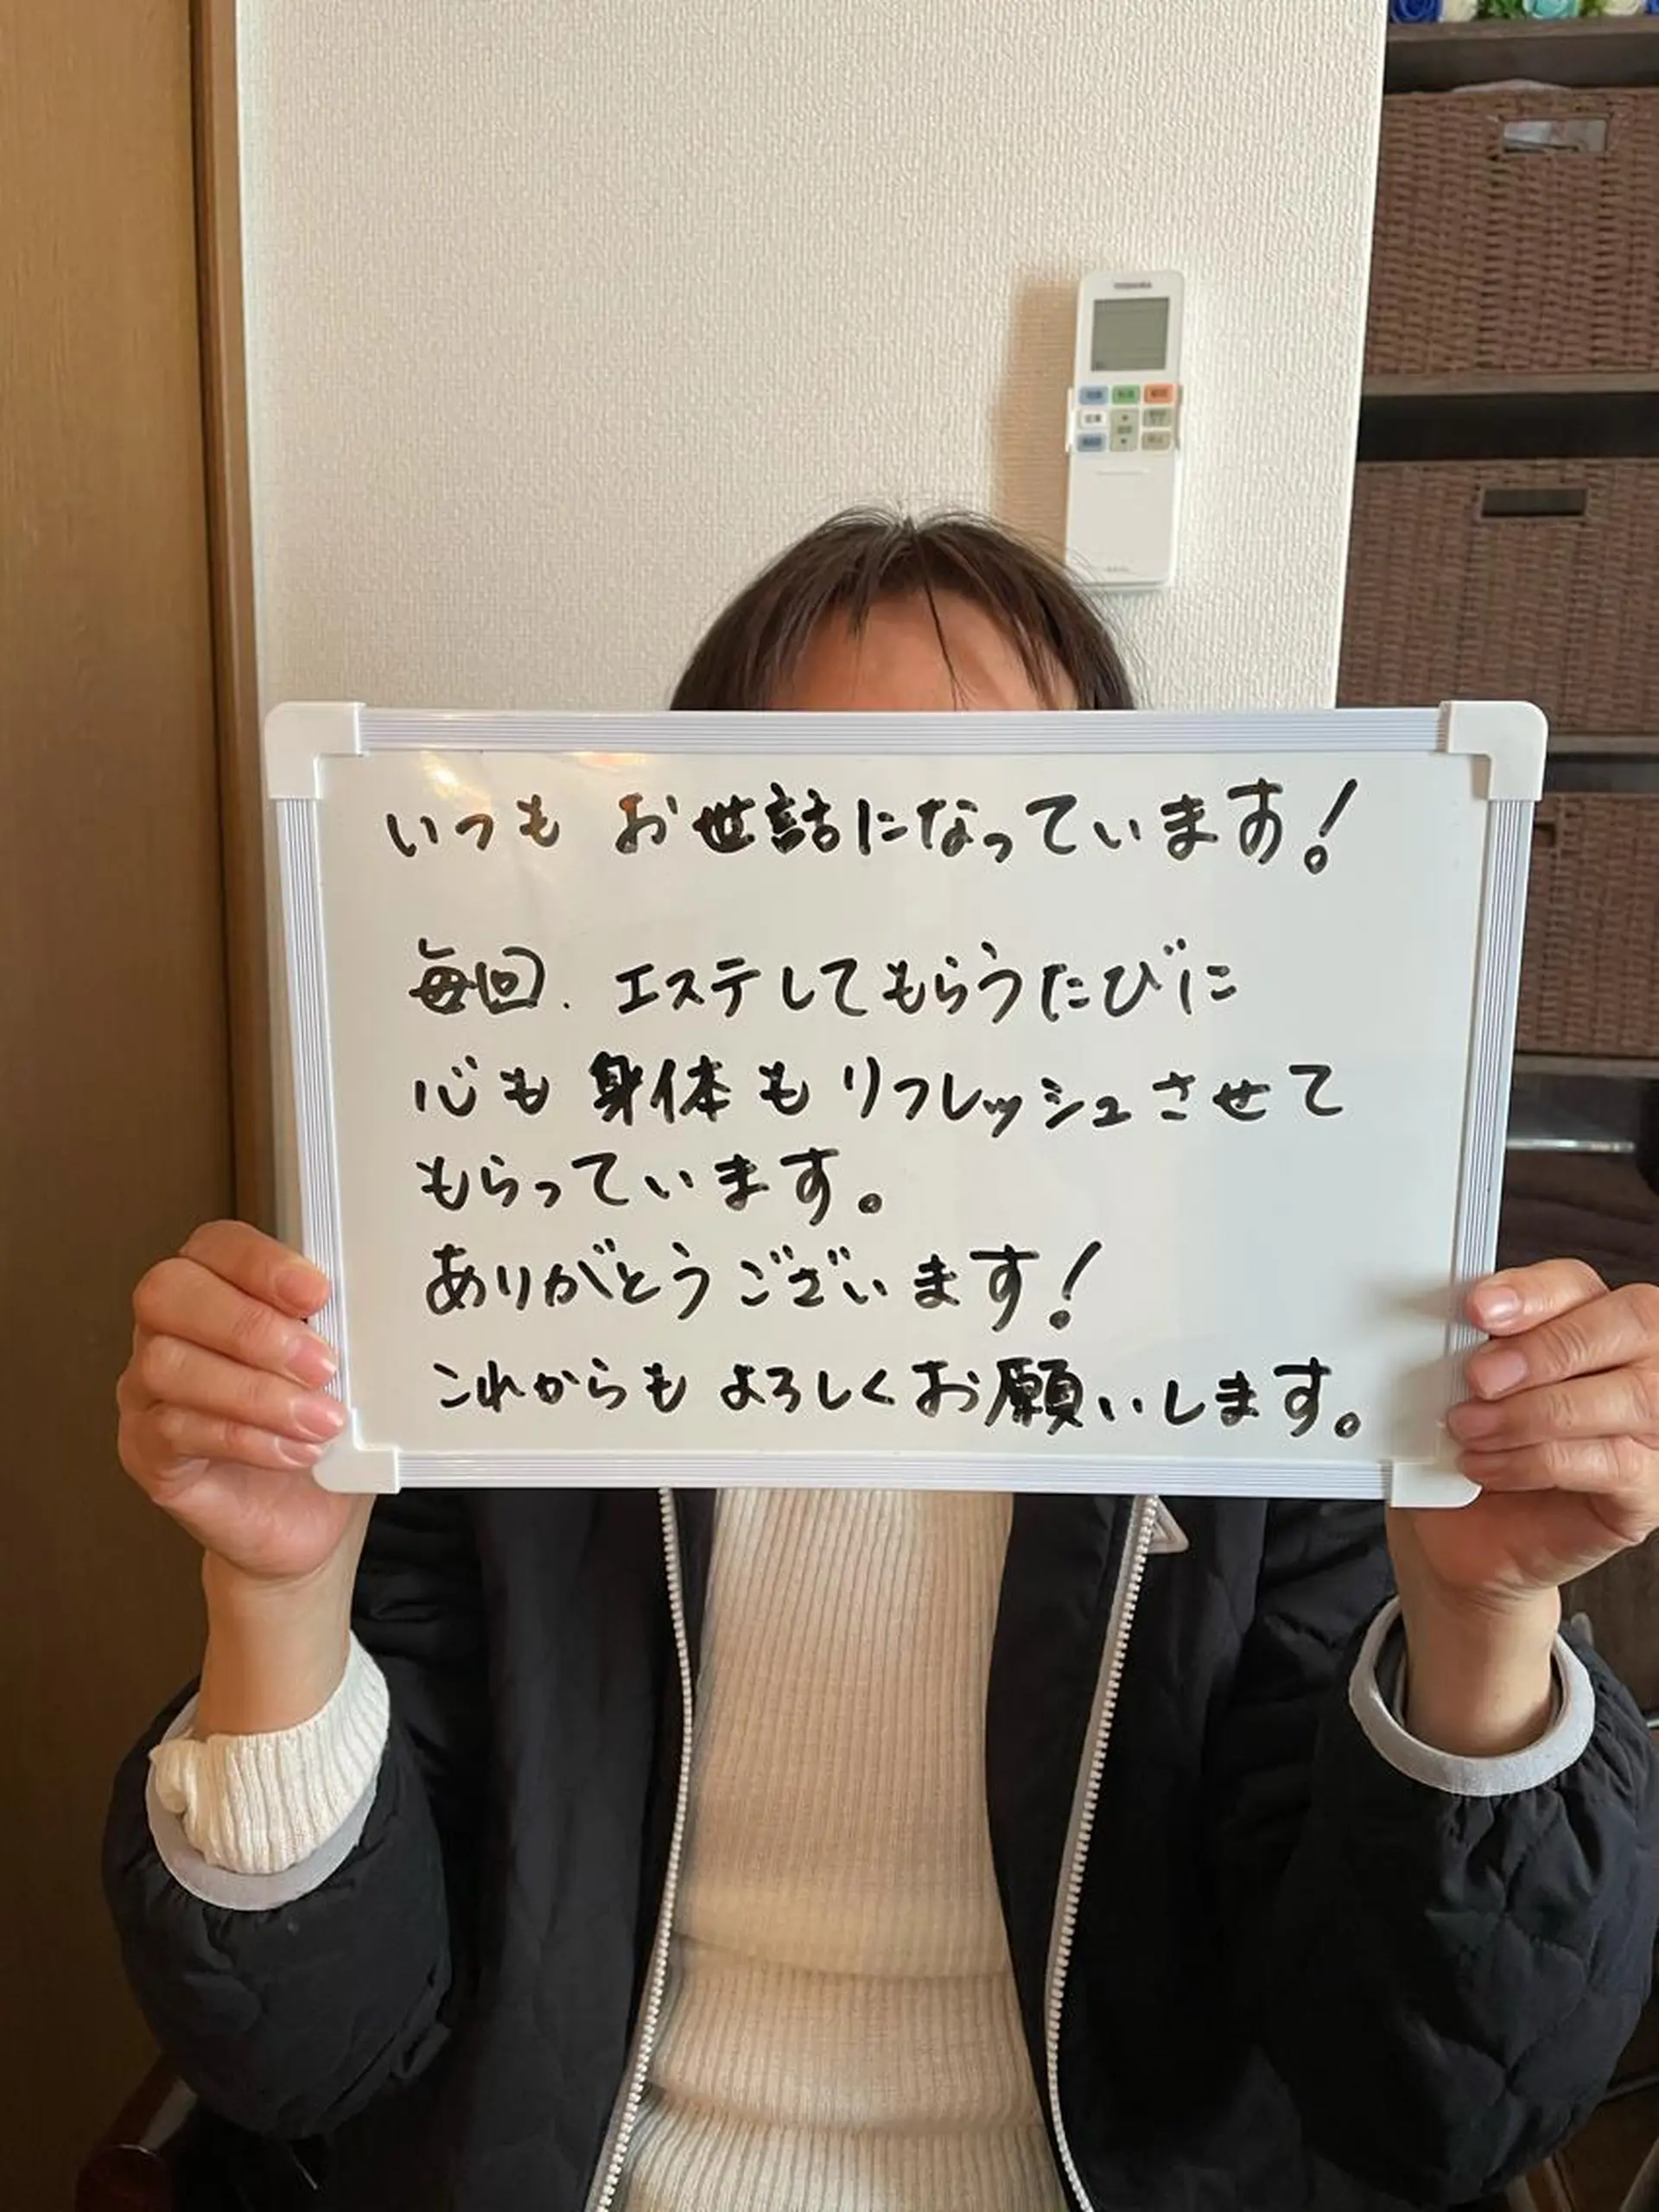 TOSHIBA
いつも お世話になっています!
毎回. エステしてもらうたびに
心も 身体も リフレッシュさせて
もらっています。
ありがとうございます!
これからも よろしくお願いします。